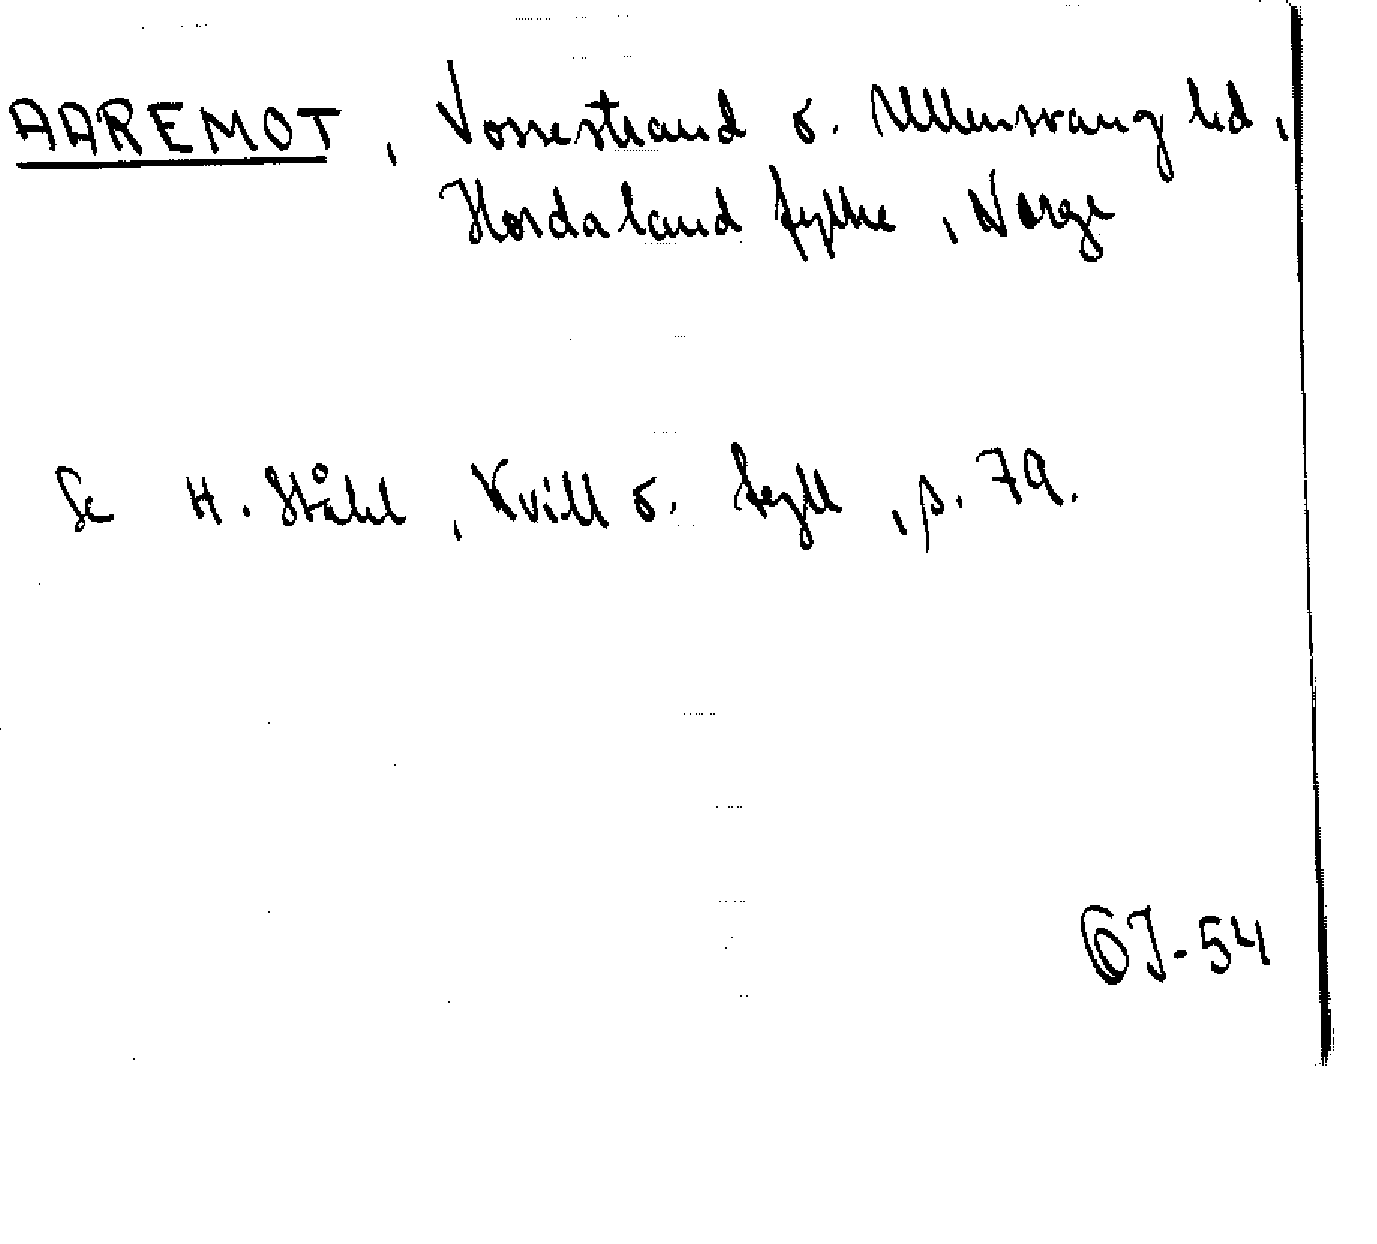 AAREMOT, Vossestrand o. Ullensvang hd,
Hordaland fylke, Norge
Se H. Ståhl, Kvill o. fyll, p. 79.
67-54